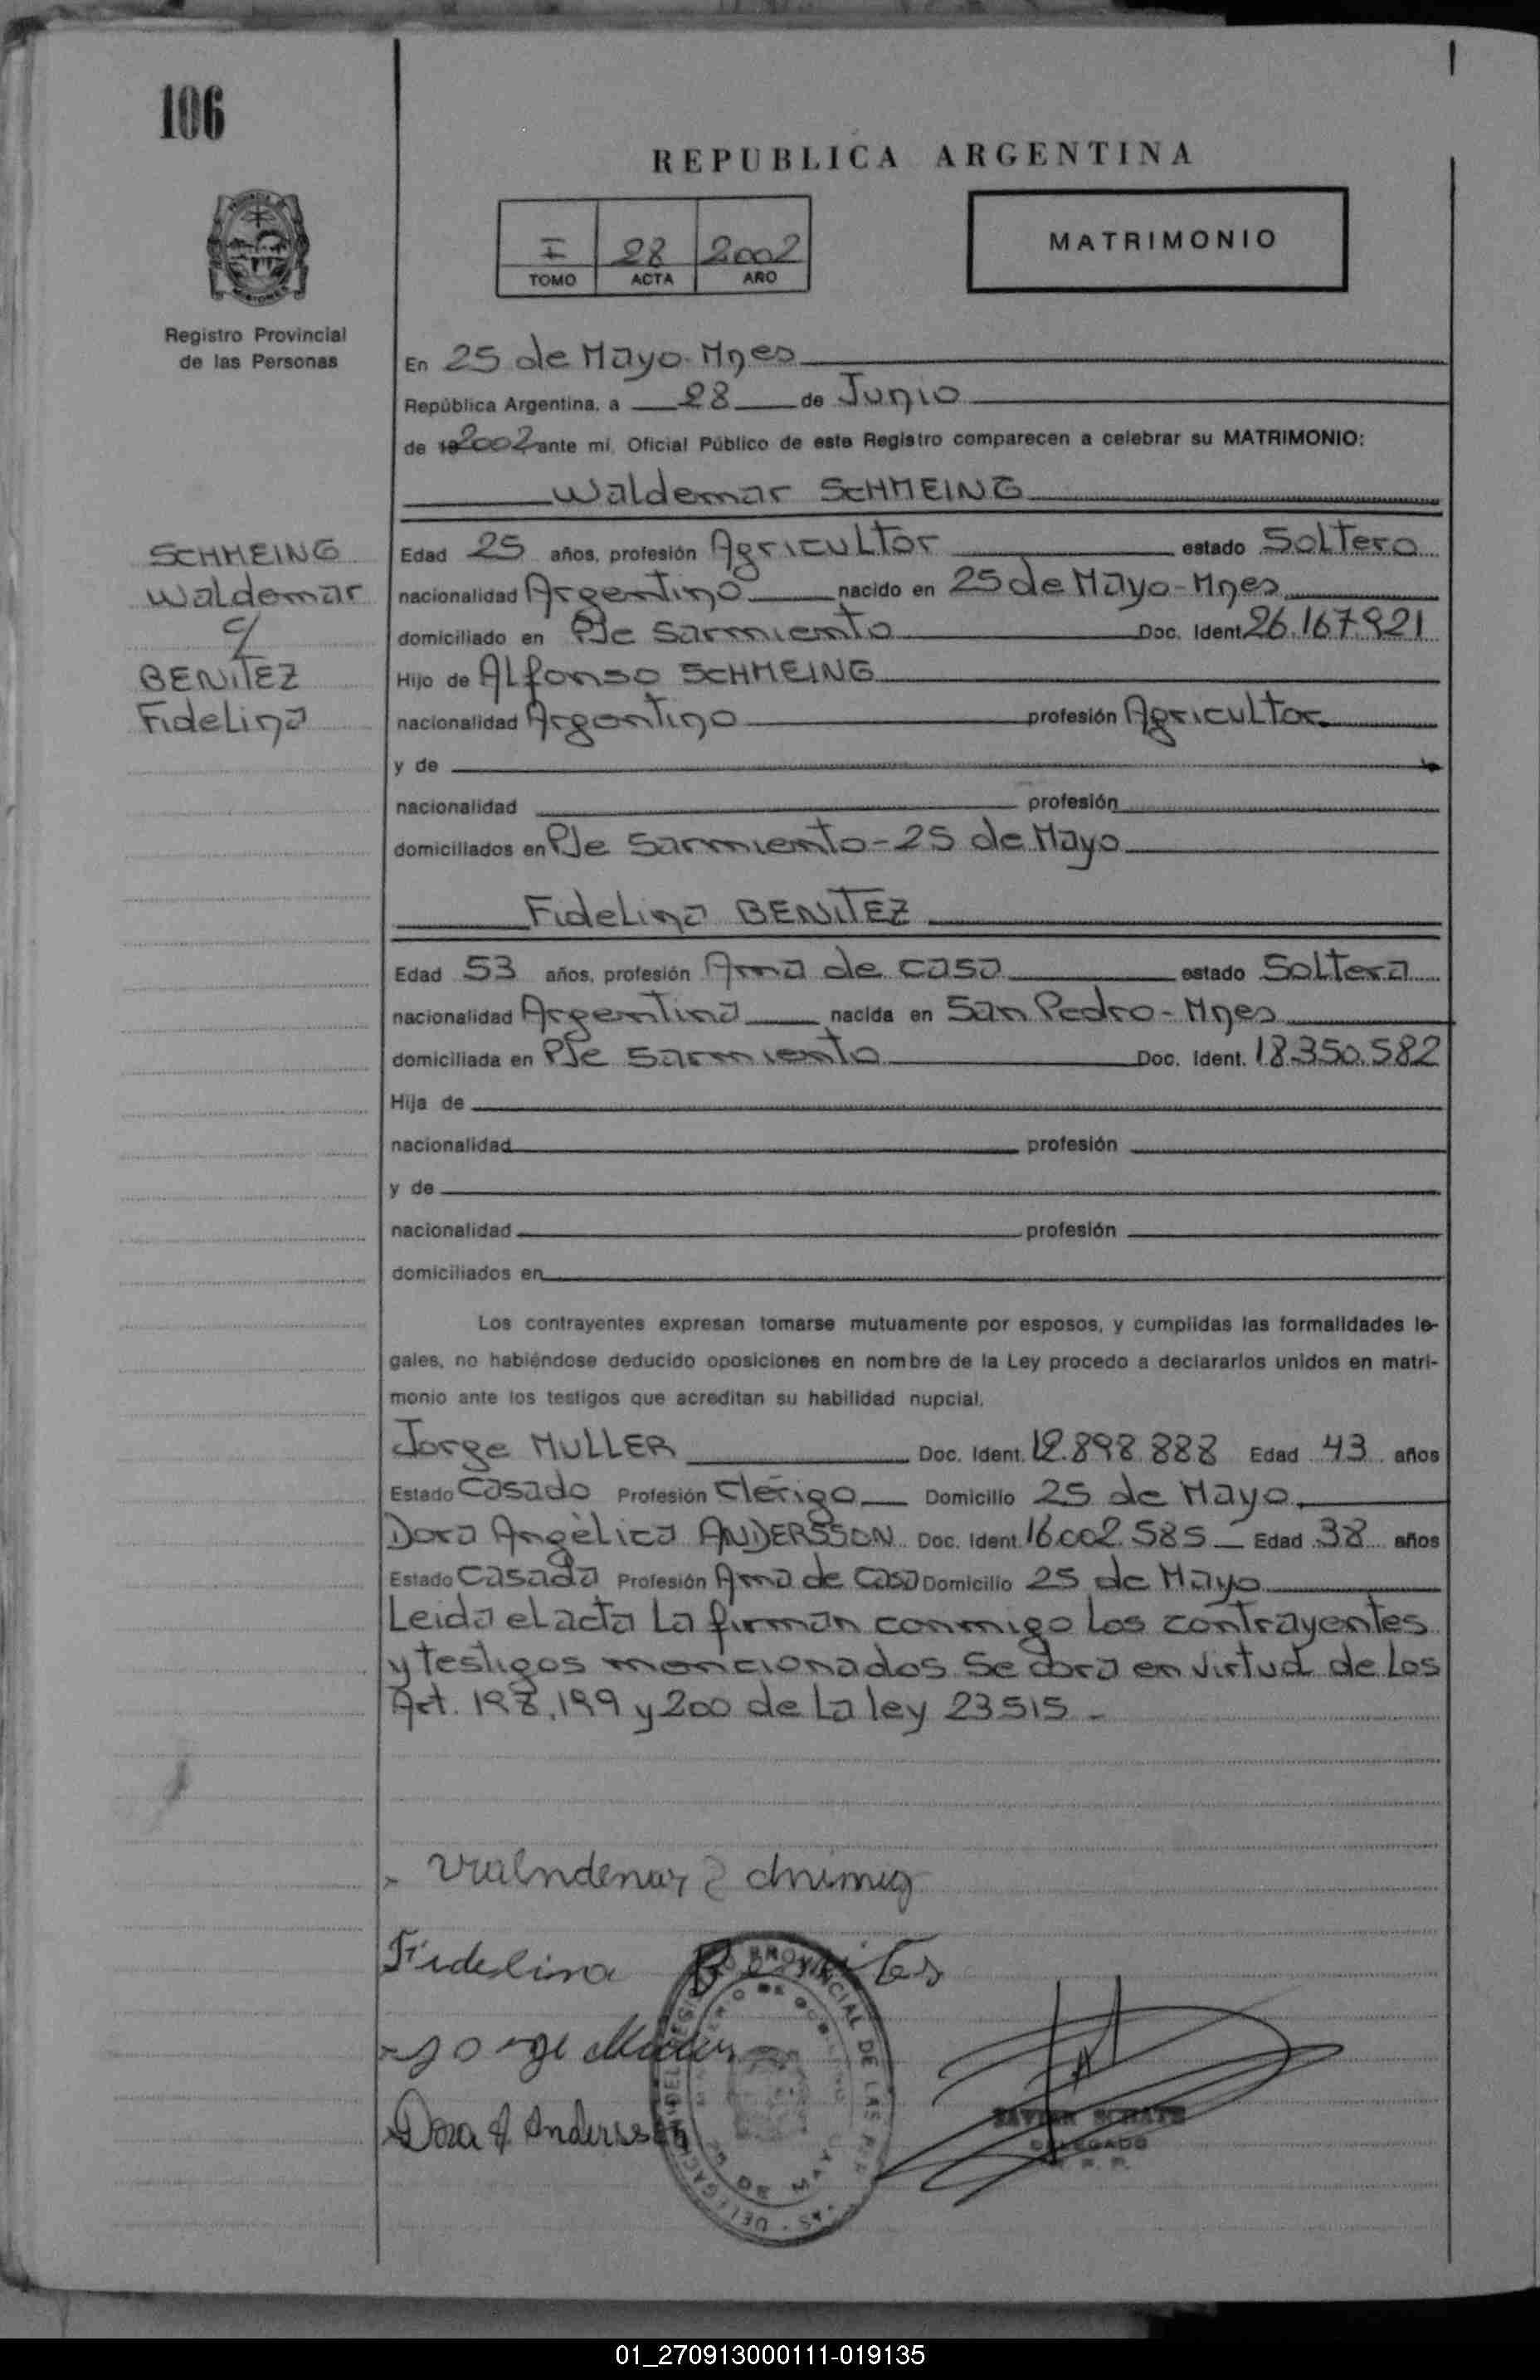 106
REPUBLICA ARGENTINA
I 28 2002
TOMO ACTA AÑO
MATRIMONIO
Registro Provincial
de las Personas
En 25 de Mayo-Mnes
República Argentina, a 28 de Junio
de 19 2002 ante mí, Oficial Público de este Registro comparecen a celebrar su MATRIMONIO:
Waldemar SCHMEING
SCHMEING
Waldemar
c/
BENITEZ
Fidelina
Edad 25 años, profesión Agricultor estado Soltero
nacionalidad Argentino nacido en 25 de Mayo-Mnes
domiciliado en Pje Sarmiento Doc. Ident. 26.167.921
Hijo de Alfonso SCHMEING
nacionalidad Argentino profesión Agricultor
y de
nacionalidad profesión
domiciliados en Pje Sarmiento-25 de Mayo
Fidelina BENITEZ
Edad 53 años, profesión Ama de casa estado Soltera
nacionalidad Argentina nacida en San Pedro-Mnes
domiciliada en Pje Sarmiento Doc. Ident. 18.350.582
Hija de
nacionalidad profesión
y de
nacionalidad profesión
domiciliados en
Los contrayentes expresan tomarse mutuamente por esposos, y cumplidas las formalidades le-
gales, no habiéndose deducido oposiciones en nombre de la Ley procedo a declararlos unidos en matri-
monio ante los testigos que acreditan su habilidad nupcial.
Jorge MULLER Doc. Ident. 12.898.888 Edad 43 años
Estado Casado Profesión Clérigo Domicilio 25 de Mayo
Dora Angélica ANDERSSON Doc. Ident. 16.002.585 Edad 38 años
Estado Casada Profesión Ama de casa Domicilio 25 de Mayo
Leida el acta La firman conmigo Los contrayentes
y testigos mencionados. Se obra en virtud de Los
Art. 198, 199 y 200 de La ley 23515 -
Fidelina
Jorge Muller
Dora A. Andersson
DELEGADO
01_270913000111-019135